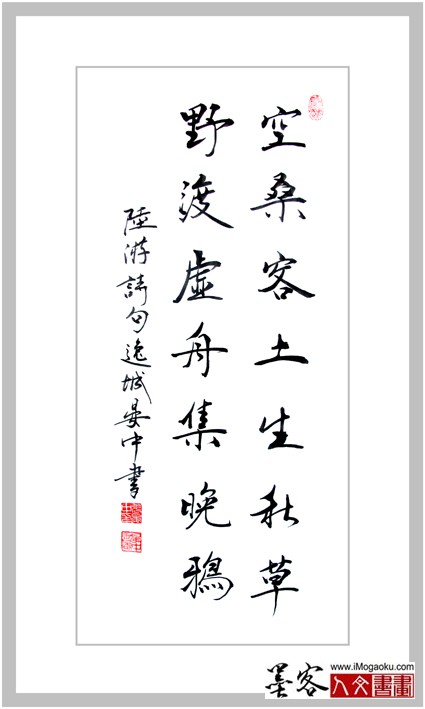 空桑客土生秋草
野渡虚舟集晚鴉
陸游詩句逸城晏中書
墨客
www.iMogaoku.com
人文書畫